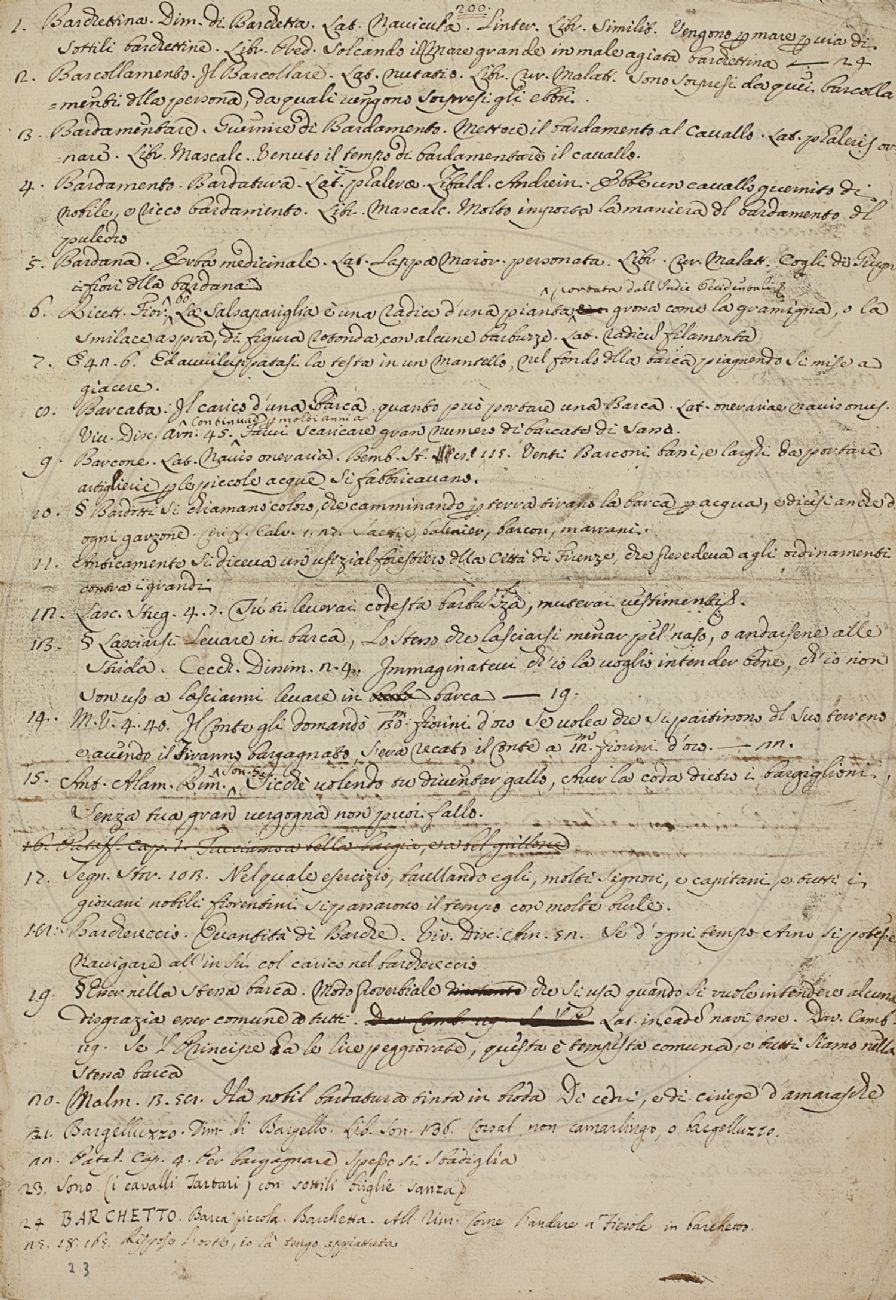 200.
1. Barchettina. Dim. di Barchetta. Lat. Navicula. Linter. Libr. Similit. Vengono p mare p via di
sottili barchettine. Libr. Pred. Solcando il mare grande in male agiata barchettina — 24
2. Barcollamento. Il Barcollare. Lat. nutatio. Libr. Cur. Malatt. Sono sorpresi da quei barcolla
=menti dlla persona, da quali vengono sorpresi gli ebbri.
3. Bardamentare. Guernire di Bardamento. Mettere il bardamento al Cavallo. Lat. phaleris or
=nare. Libr. Mascalc. Venuto il tempo di bardamentare il cavallo.
4. Bardamento. Bardatura. Lat. phalerae. Zibald. Andrein. Ebbe un cavallo guernito di
nobile, e ricco bardamento. Libr. Mascalc. Molto importa la maniera dl bardamento dl
puledro
5. Bardana. Erba medicinale. Lat. Lappa Maior. personata. Libr. Cur. Malatt. Cogli di Giugn
i fiori dlla bardana
portata dall'Indie Occidentali
6. Ricett. Fior. 60 La Salsapariglia è una radice d'una pianta grossa come la gramigna, o la
smilace aspra, di figura rotonda, con alcune barbuzze. Lat. radicul filamenta
7. E 4. n. 6. Ed avviluppatasi la testa in un mantello, nel fondo dlla barca piagnendo si mise a
giacere.
8. Barcata. Il carico d'una Barca, quanto può portare una Barca. Lat. onerariae navis onus.
continuando molti anni a
Viv. Disc. Arn. 45. scaricare gran numero di barcate di sassi.
9. Barcone. Lat. Navis oneraria. Bemb. St. 115. Venti Barconi bassi, e larghi da portare
artiglierie p le piccole acque si fabbricavano.
10. § Bardotti si chiamano coloro, che camminando p terra tirano la barca p acqua, e dicesi anche d
ogni garzone. Ciriff. Calv. Saettie, balenier, barcon, marrani.
11. Anticamente si diceva un ufizial forestiero dlla Città di Firenze, che presedeva agli ordinamenti
contra i grandi
12. Lasc. Streg. 4. 7. Tu ti leverai codesta barbuzza, muterai vestimenti.
13. § Lasciarsi levare in barca, Lo stesso che lasciarsi menar p'l naso, o andarsene alle
grida. Cecch. Dissim. 2. 4. Immaginatevi ch'io la voglio intender bene, ch'io non
son uso a lasciarmi levare in barca — 19.
14. M. V. 4. 40. Il Conte gli domandò fiorini d'oro se volea che si partissono dl suo terreno
e avendo il Tiranno bargagnato, s'era recato il Conte a fiorini d'oro. —
15. Ant. Alam. Rim. Son. Sicchè volendo tu diventar gallo, Aver la coda dietro i bargiglioni,
Senza tua gran vergogna non puoi fallo.
16. Pataff. Cap. 1.
17. Segn. Stor. 103. Nel quale esercizio, burlando egli, molti Signori, e capitani, e tutti i
giovani nobili fiorentini si passarono il tempo con molte burle.
18. Barchereccio. Quantità di Barche. Viv. Disc. Arn. 52. Se d'ogni tempo Arno si potesse
Navigare all'in su col carico nel barchereccio
19. § Esser nella stessa barca. Modo proverbiale che si usa quando si vuole intendere alcuna
disgrazia esser comune a tutti. Lat. in eade navi esse. Dav. Camb.
119. Se 'l Principe ha le lire peggiorate, questa è tempesta comune, e tutti siamo nella
stessa barca
20. Malm. 3. Ha nobil bardatura tinta in broda Di cedri, e di ciriege d'amarasche
21. Bargelluzzo. Dim. di Bargello. Lib. Son. 136. Corsal, non camarlingo, o bargelluzzo.
22. Pataf. Cap. 4. Per bargagnare spesso si sbadiglia
23. Sono (i cavalli Tartari) con sottili briglie sanza
24 BARCHETTO. Barca piccola. Barchetta. All. Rim. Come l'andare a Fiesole in barchetto.
25. 18. 163. Rispose l'oste, io la tengo appiattata
23